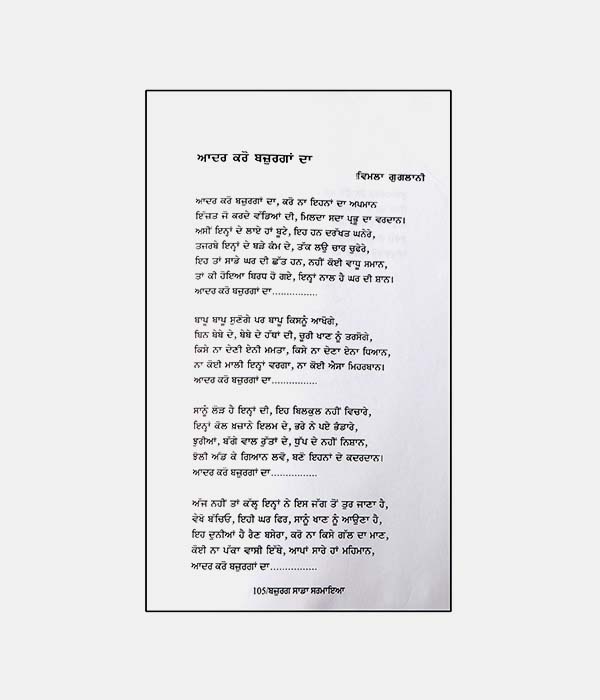 ਆਦਰ ਕਰੋ ਬਜ਼ੁਰਗਾਂ ਦਾ
ਵਿਮਲਾ ਗੁਗਲਾਨੀ
ਆਦਰ ਕਰੋ ਬਜ਼ੁਰਗਾਂ ਦਾ, ਕਰੋ ਨਾ ਇਹਨਾਂ ਦਾ ਅਪਮਾਨ
ਇੱਜ਼ਤ ਜੋ ਕਰਦੇ ਵੱਡਿਆਂ ਦੀ, ਮਿਲਦਾ ਸਦਾ ਪ੍ਰਭੂ ਦਾ ਵਰਦਾਨ।
ਅਸੀਂ ਇਨ੍ਹਾਂ ਦੇ ਲਾਏ ਹਾਂ ਬੂਟੇ, ਇਹ ਹਨ ਦਰੱਖਤ ਘਨੇਰੇ,
ਤਜਰਬੇ ਇਨ੍ਹਾਂ ਦੇ ਬੜੇ ਕੰਮ ਦੇ, ਤੱਕ ਲਉ ਚਾਰ ਚੁਫੇਰੇ,
ਇਹ ਤਾਂ ਸਾਡੇ ਘਰ ਦੀ ਛੱਤ ਹਨ, ਨਹੀਂ ਕੋਈ ਵਾਧੂ ਸਮਾਨ,
ਤਾਂ ਕੀ ਹੋਇਆ ਬਿਰਧ ਹੋ ਗਏ, ਇਨ੍ਹਾਂ ਨਾਲ ਹੈ ਘਰ ਦੀ ਸ਼ਾਨ।
ਆਦਰ ਕਰੋ ਬਜ਼ੁਰਗਾਂ ਦਾ...............
ਬਾਪੂ ਬਾਪੂ ਸੁਣੋਗੇ ਪਰ ਬਾਪੂ ਕਿਸਨੂੰ ਆਖੋਗੇ,
ਬਿਨ ਬੇਬੇ ਦੇ, ਬੇਬੇ ਦੇ ਹੱਥਾਂ ਦੀ, ਚੂਰੀ ਖਾਣ ਨੂੰ ਤਰਸੋਗੇ,
ਕਿਸੇ ਨਾ ਦੇਣੀ ਏਨੀ ਮਮਤਾ, ਕਿਸੇ ਨਾ ਦੇਣਾ ਏਨਾ ਧਿਆਨ,
ਨਾ ਕੋਈ ਮਾਲੀ ਇਨ੍ਹਾਂ ਵਰਗਾ, ਨਾ ਕੋਈ ਐਸਾ ਮਿਹਰਬਾਨ।
ਆਦਰ ਕਰੋ ਬਜ਼ੁਰਗਾਂ ਦਾ...............
ਸਾਨੂੰ ਲੋੜ ਹੈ ਇਨ੍ਹਾਂ ਦੀ, ਇਹ ਬਿਲਕੁਲ ਨਹੀਂ ਵਿਚਾਰੇ,
ਇਨ੍ਹਾਂ ਕੋਲ ਖ਼ਜ਼ਾਨੇ ਇਲਮ ਦੇ, ਭਰੇ ਨੇ ਪਏ ਭੰਡਾਰੇ,
ਝੁਰੀਆਂ, ਬੱਗੇ ਵਾਲ ਰੁੱਤਾਂ ਦੇ, ਧੁੱਪ ਦੇ ਨਹੀਂ ਨਿਸ਼ਾਨ,
ਝੋਲੀ ਅੱਡ ਕੇ ਗਿਆਨ ਲਵੋ, ਬਣੋ ਇਹਨਾਂ ਦੇ ਕਦਰਦਾਨ।
ਆਦਰ ਕਰੋ ਬਜ਼ੁਰਗਾਂ ਦਾ...............
ਅੱਜ ਨਹੀਂ ਤਾਂ ਕੱਲ੍ਹ ਇਨ੍ਹਾਂ ਨੇ ਇਸ ਜੱਗ ਤੋਂ ਤੁਰ ਜਾਣਾ ਹੈ,
ਵੇਖੋ ਬੱਚਿਓ, ਇਹੀ ਘਰ ਫਿਰ, ਸਾਨੂੰ ਖਾਣ ਨੂੰ ਆਉਣਾ ਹੈ,
ਇਹ ਦੁਨੀਆਂ ਹੈ ਰੈਣ ਬਸੇਰਾ, ਕਰੋ ਨਾ ਕਿਸੇ ਗੱਲ ਦਾ ਮਾਣ,
ਕੋਈ ਨਾ ਪੱਕਾ ਵਾਸੀ ਇੱਥੇ, ਆਪਾਂ ਸਾਰੇ ਹਾਂ ਮਹਿਮਾਨ,
ਆਦਰ ਕਰੋ ਬਜ਼ੁਰਗਾਂ ਦਾ...............
105/ਬਜ਼ੁਰਗ ਸਾਡਾ ਸਰਮਾਇਆ